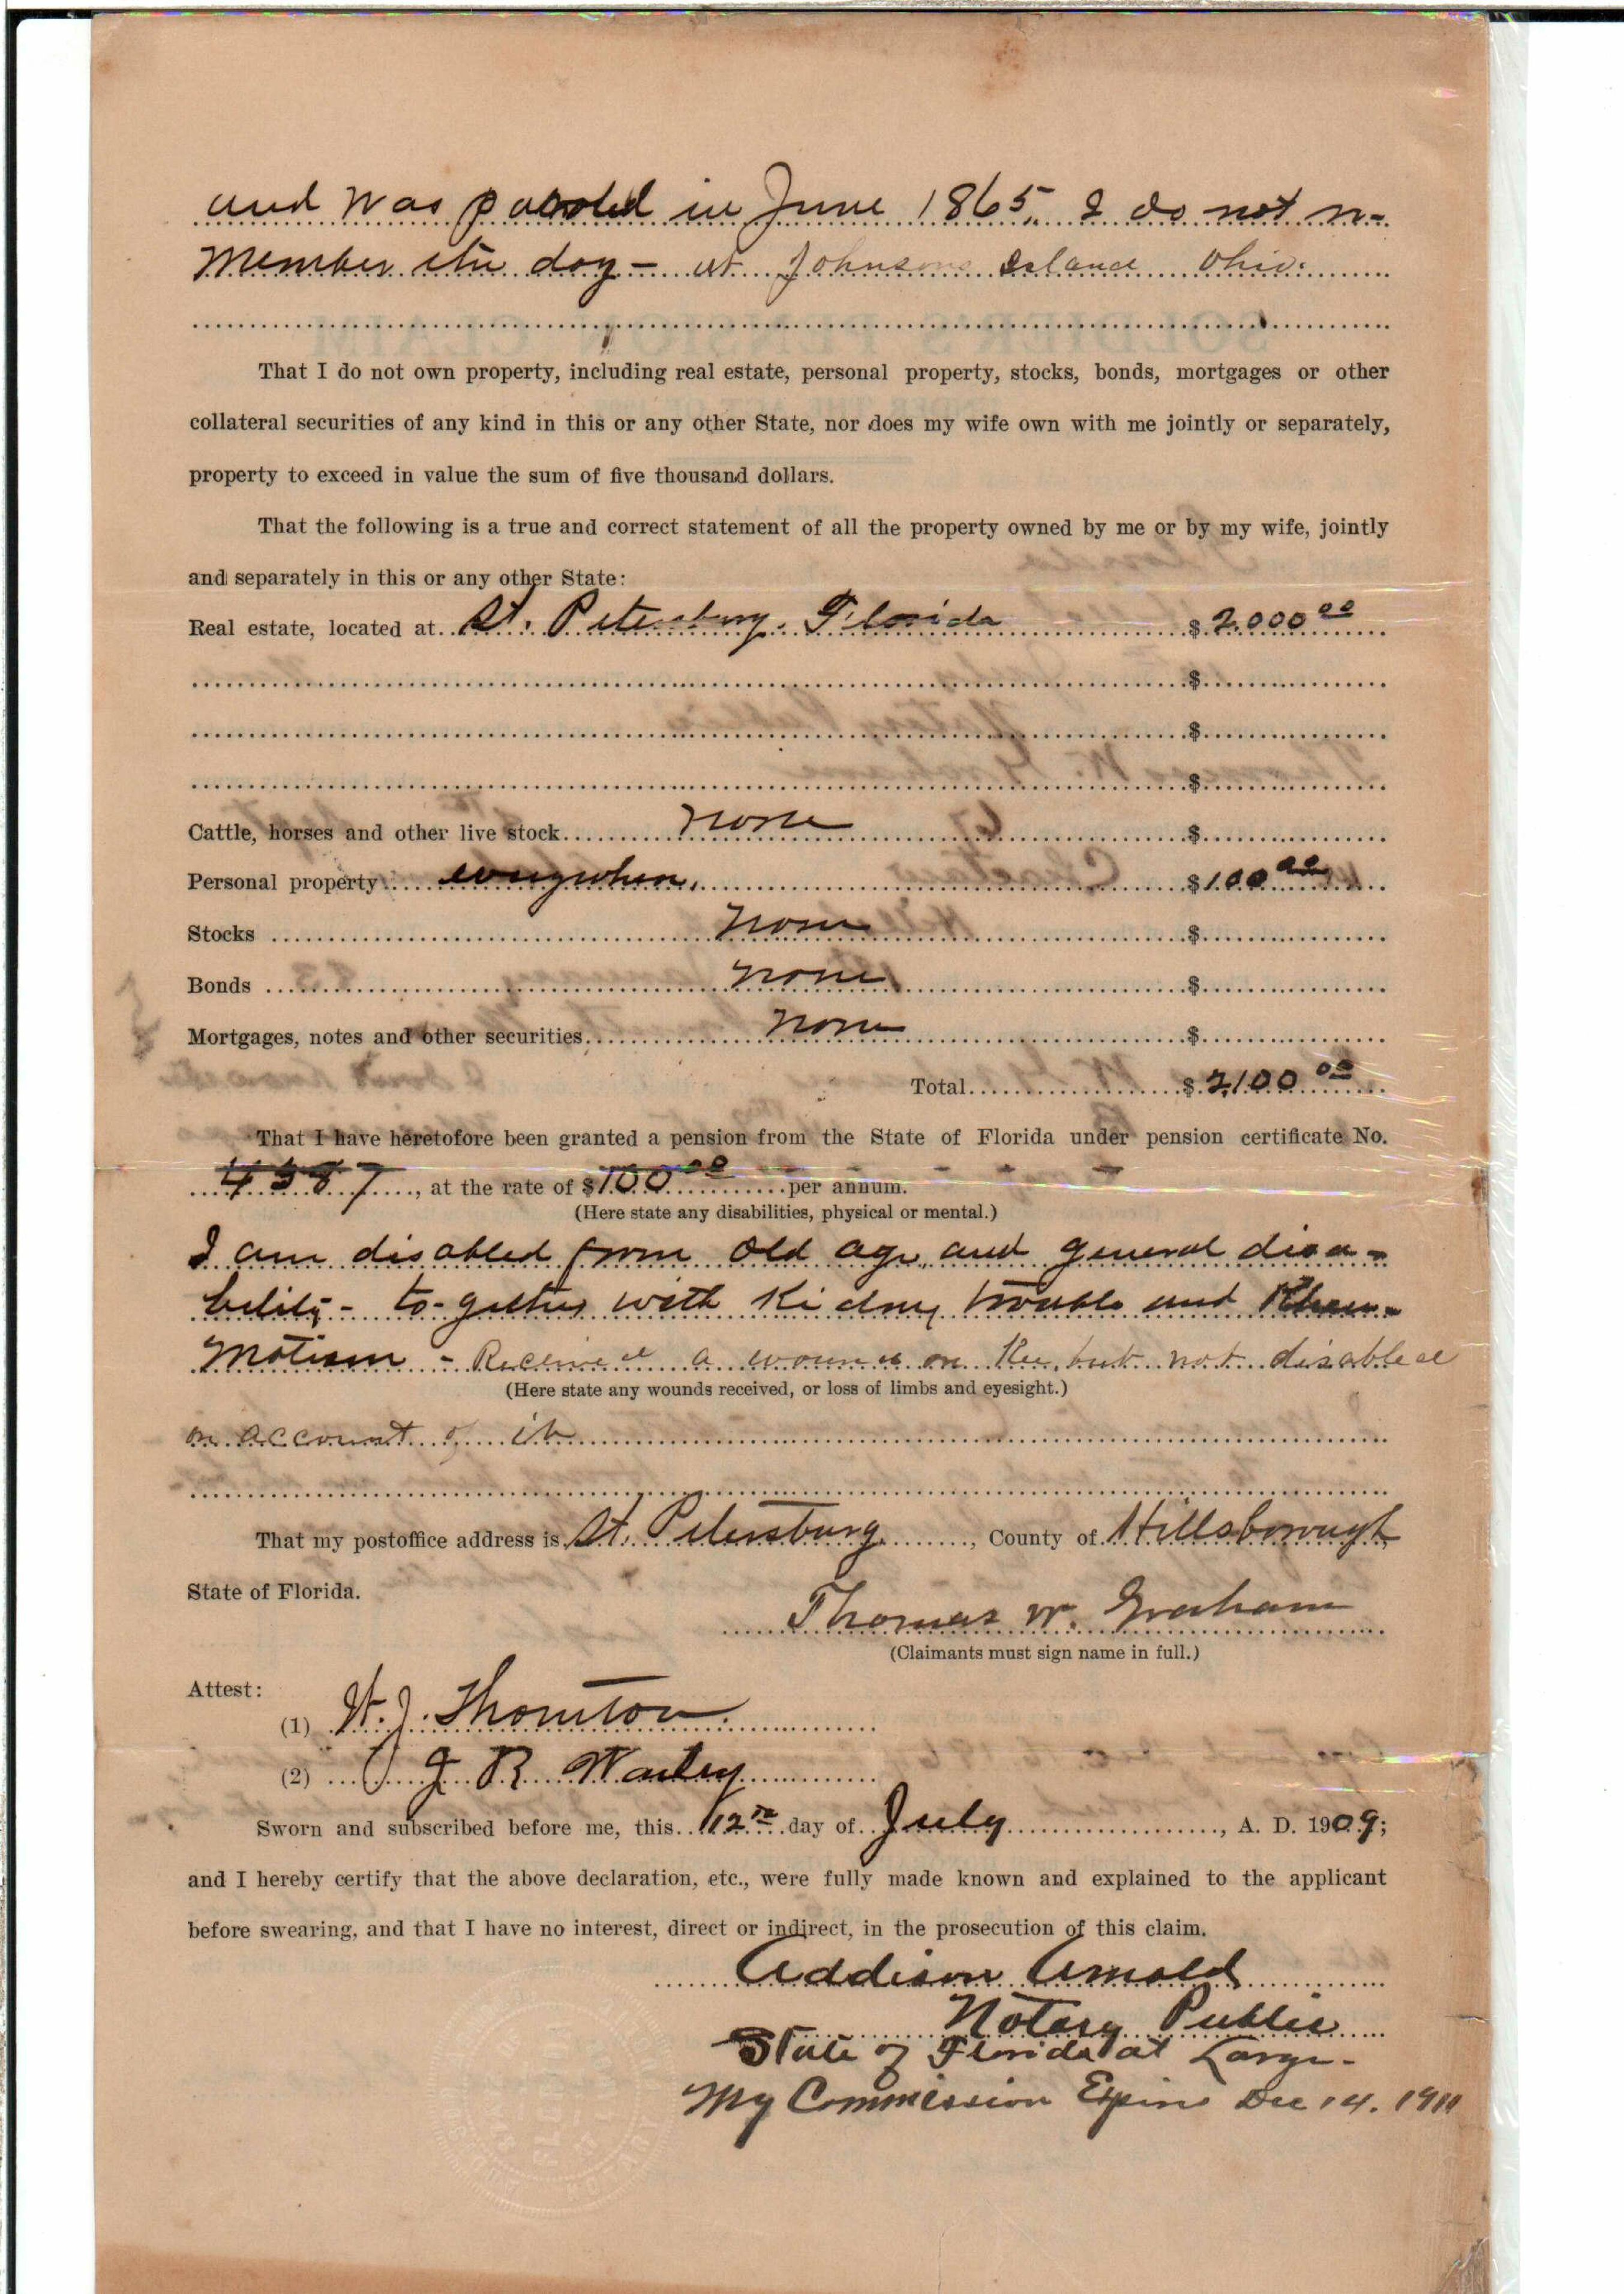 and was paroled in June 1865, I do not re-
member the day - at Johnsons Island Ohio.
That I do not own property, including real estate, personal property, stocks, bonds, mortgages or other
collateral securities of any kind in this or any other State, nor does my wife own with me jointly or separately,
property to exceed in value the sum of five thousand dollars.
That the following is a true and correct statement of all the property owned by me or by my wife, jointly
and separately in this or any other State:
Real estate, located at St. Petersburg, Florida $2.000 00
$
$
$
Cattle, horses and other live stock none $
Personal property everywhere, $100 00
Stocks none $
Bonds none $
Mortgages, notes and other securities none $
Total $2,100 00
That I have heretofore been granted a pension from the State of Florida under pension certificate No.
4387, at the rate of $100 00 per annum.
(Here state any disabilities, physical or mental.)
I am disabled from old age, and general disa-
bility - to-gether with Kidney trouble and Rheu-
matism - Received a wound on Knee, but not disabled
(Here state any wounds received, or loss of limbs and eyesight.)
on account of it
That my postoffice address is St. Petersburg, County of Hillsborough
State of Florida.
Thomas W. Graham
(Claimants must sign name in full.)
Attest:
(1) Thornton
(2) J R
Sworn and subscribed before me, this 12th day of July, A. D. 1909;
and I hereby certify that the above declaration, etc., were fully made known and explained to the applicant
before swearing, and that I have no interest, direct or indirect, in the prosecution of this claim.
Addison Arnold
Notary Public
State of Florida at Large-
My Commission Expires Dec 14. 1911